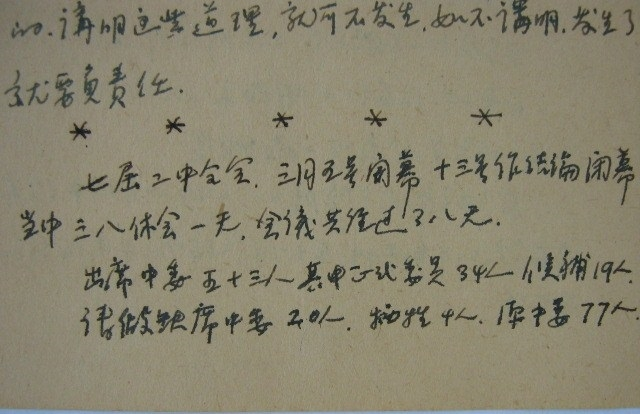 的.讲明这些道理,就可不发生,如不讲明.发生了
就要负责任.
* * * * *
七届二中全会.三月五号開幕 十三号作结論闭幕
当中三八休会一天,会議共经过了八天.
出席中委五十三人 其中正式委员34人 候補19人.
请假缺席中委20人.牺牲4人.原中委77人.